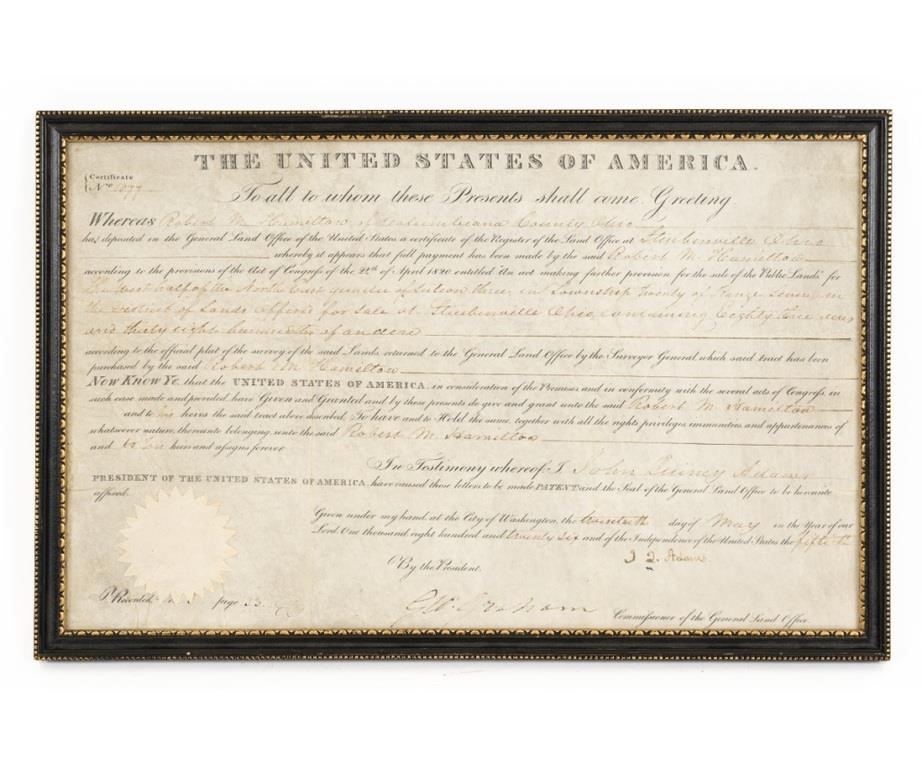 THE UNITED STATES OF AMERICA.
Certificate
No. 1077
To all to whom these Presents shall come, Greeting
Whereas Robert M. Hamilton of Columbiana County Ohio
has deposited in the General Land Office of the United States a certificate of the Register of the Land Office at Steubenville Ohio
whereby it appears that full payment has been made by the said Robert M. Hamilton
according to the provisions of the Act of Congress of the 24th of April 1820, entitled An act making further provision for the sale of the Public Lands for
the West half of the North East quarter of Section three, in Township Twenty of Range Seven, in
the District of Lands offered for sale at Steubenville Ohio, containing Eighty three acres
and thirty eight hundredths of an acre
according to the official plat of the survey of the said Lands returned to the General Land Office by the Surveyor General, which said tract has been
purchased by the said Robert M. Hamilton
Now Know Ye, that the UNITED STATES OF AMERICA, in consideration of the Premises and in conformity with the several acts of Congress, in
such case made and provided, have Given and Granted and by these presents do give and grant unto the said Robert M. Hamilton
and to his heirs the said tract above described, To have and to Hold the same, together with all the rights privileges immunities and appurtenances of
whatsoever nature, thereunto belonging, unto the said Robert M. Hamilton
and to his heirs and assigns forever.
In Testimony whereof I John Quincy Adams
PRESIDENT OF THE UNITED STATES OF AMERICA, have caused these letters to be made PATENT and the Seal of the General Land Office to be hereunto
affixed.
Given under my hand, at the City of Washington, the twentieth day of May in the Year of our
Lord One thousand eight hundred and twenty six and of the Independence of the United States the fiftieth
J. Q. Adams
By the President.
Recorded page 33
Geo. Graham Commissioner of the General Land Office.